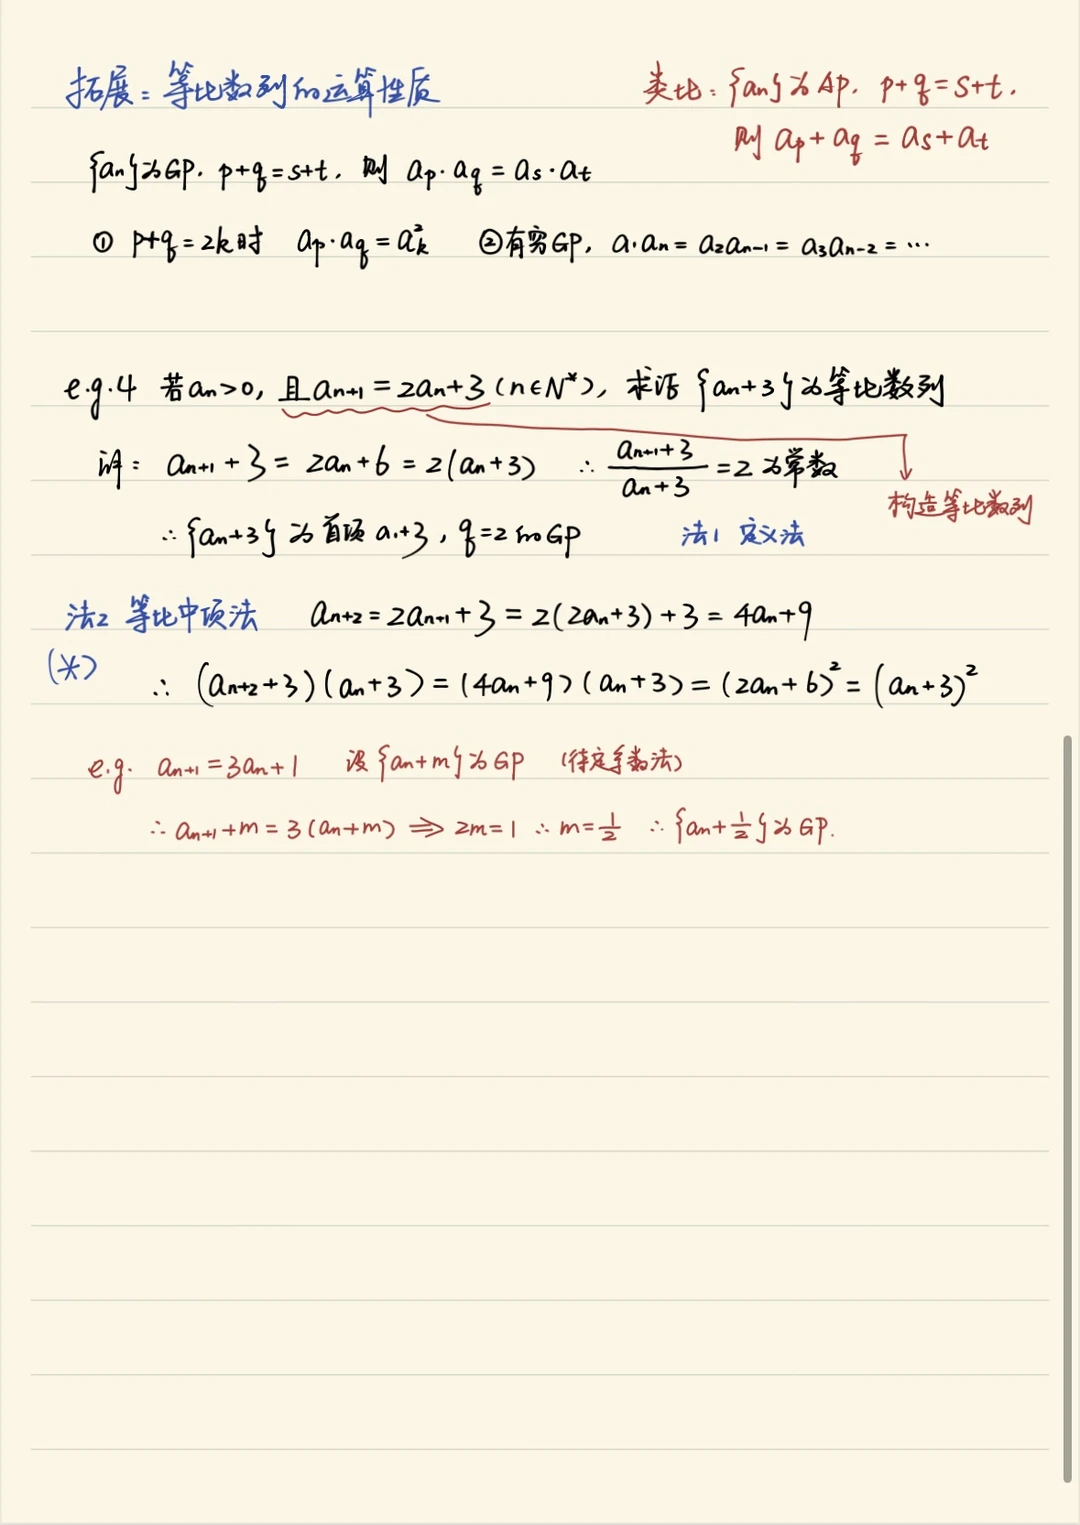 拓展：等比数列的运算性质
类比：{an}为AP. p+q=s+t.
则 ap+aq = as+at
{an}为GP. p+q=s+t. 则 ap·aq = as·at
① p+q=2k时 ap·aq=ak² ②有穷GP, a1an = a2an-1 = a3an-2 = …
e.g.4 若an>0, 且an+1=2an+3 (n∈N*), 求证 {an+3}为等比数列
证： an+1+3 = 2an+6 = 2(an+3) ∴ (an+1+3)/(an+3) = 2 为常数
构造等比数列
∴{an+3} 为首项 a1+3, q=2的GP 法1 定义法
法2 等比中项法 an+2=2an+1+3 = 2(2an+3)+3 = 4an+9
(*)
∴ (an+2+3)(an+3) = (4an+9)(an+3) = (2an+6)² = (an+3)²
e.g. an+1=3an+1 设{an+m}为GP (待定系数法)
∴ an+1+m = 3(an+m) ⇒ 2m=1 ∴ m=1/2 ∴{an+1/2}为GP.